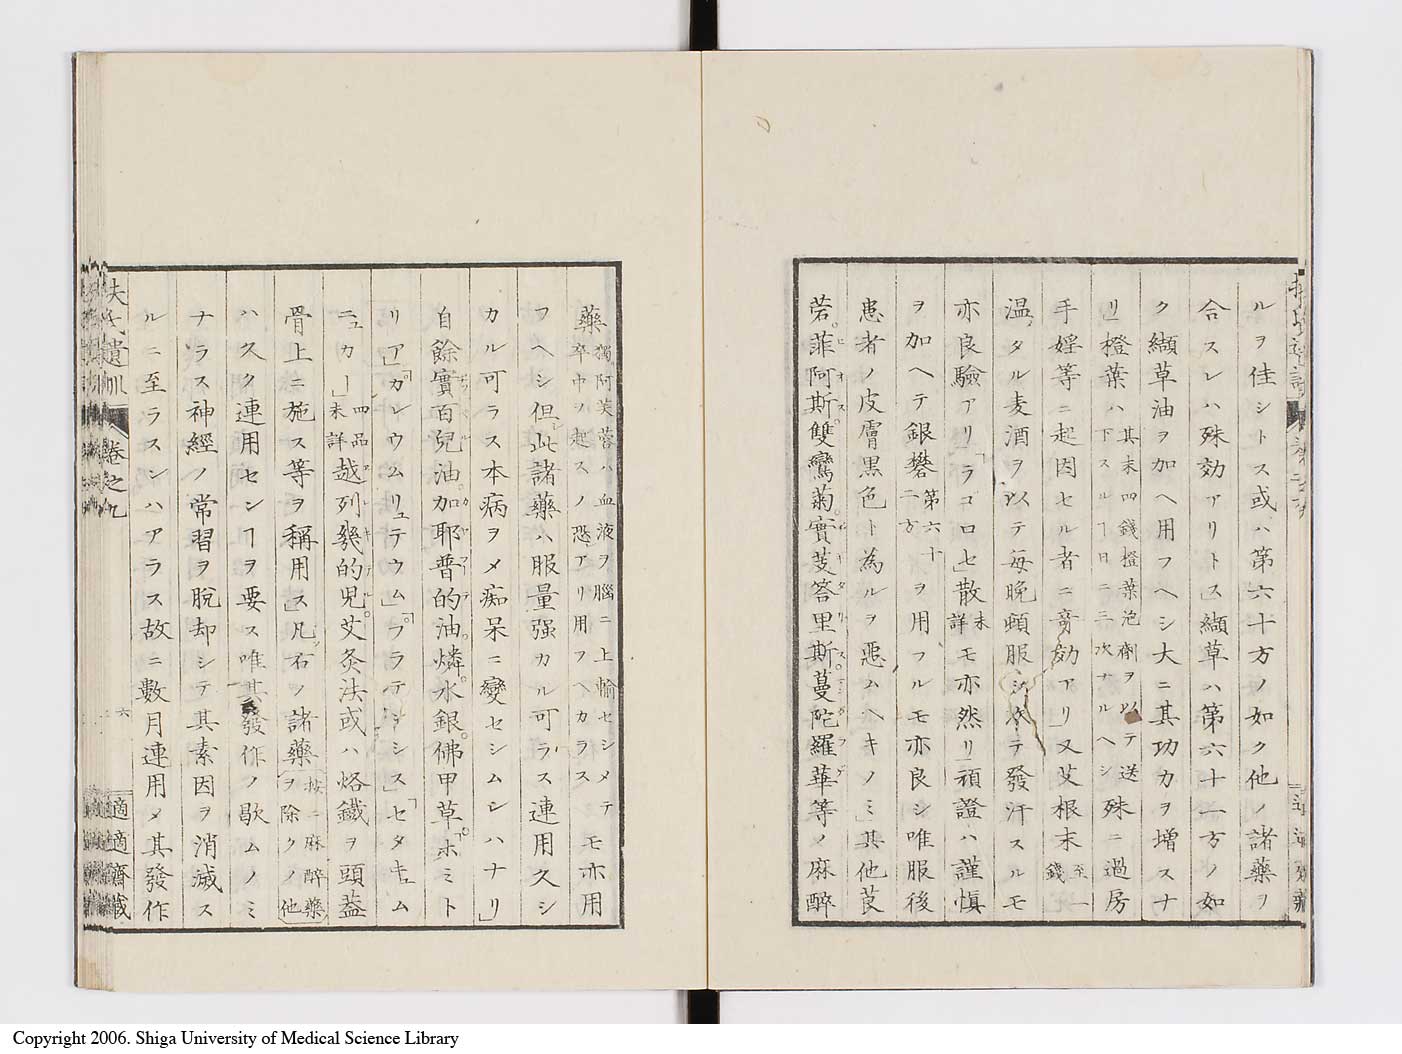 ルヲ佳シトス或ハ第六十方ノ如ク他ノ諸藥ヲ
合スレハ殊効アリトス纈草ハ第六十一方ノ如
ク纈草油ヲ加ヘ用フヘシ大ニ其功力ヲ増スナ
リ橙葉ハ其末四錢橙葉泡劑ヲ以テ送下スルヿ日ニ三次ナルヘシ殊ニ過房
手婬等ニ起因セル者ニ竒効アリ又艾根末至一錢
温メタル麦酒ヲ以テ毎晩頓服シ次テ發汗スルモ
亦良驗アリ「ラゴロセ」散未詳モ亦然リ頑證ハ謹愼
ヲ加ヘテ銀礬第六十二方ヲ用フルモ亦良シ唯服後
患者ノ皮膚黒色ト為ルヲ惡ムヘキノミ其他莨
菪菲阿斯雙鸞菊實芰答里斯蔓陀羅華等ノ麻醉
藥獨阿芙蓉ハ血液ヲ腦ニ上輸セシメテ卒中ヲ起スノ恐アリ用フヘカラスモ亦用
フヘシ但此諸藥ハ服量强カル可ラス連用久シ
カル可ラス本病ヲメ痴呆ニ變セシムレハナリ
自餘實百兒油加耶普的油燐水銀佛甲草ホミト
リア「ガレウムリュテウム」「プラテンシス」「セタキュム
ニュカー」四品未詳越列幾的兒艾灸法或ハ烙鐵ヲ頭蓋
骨上ニ施ス等ヲ稱用ス凡右ノ諸藥按ニ麻醉藥ヲ除クノ他
ハ久ク連用センヿヲ要ス唯其發作ノ歇ムノミ
ナラス神經ノ常習ヲ脫却シテ其素因ヲ消滅ス
ルニ至ラスンハアラス故ニ數月連用メ其發作
扶氏遺訓
卷之九
六
適適齋藏
Copyright 2006. Shiga University of Medical Science Library